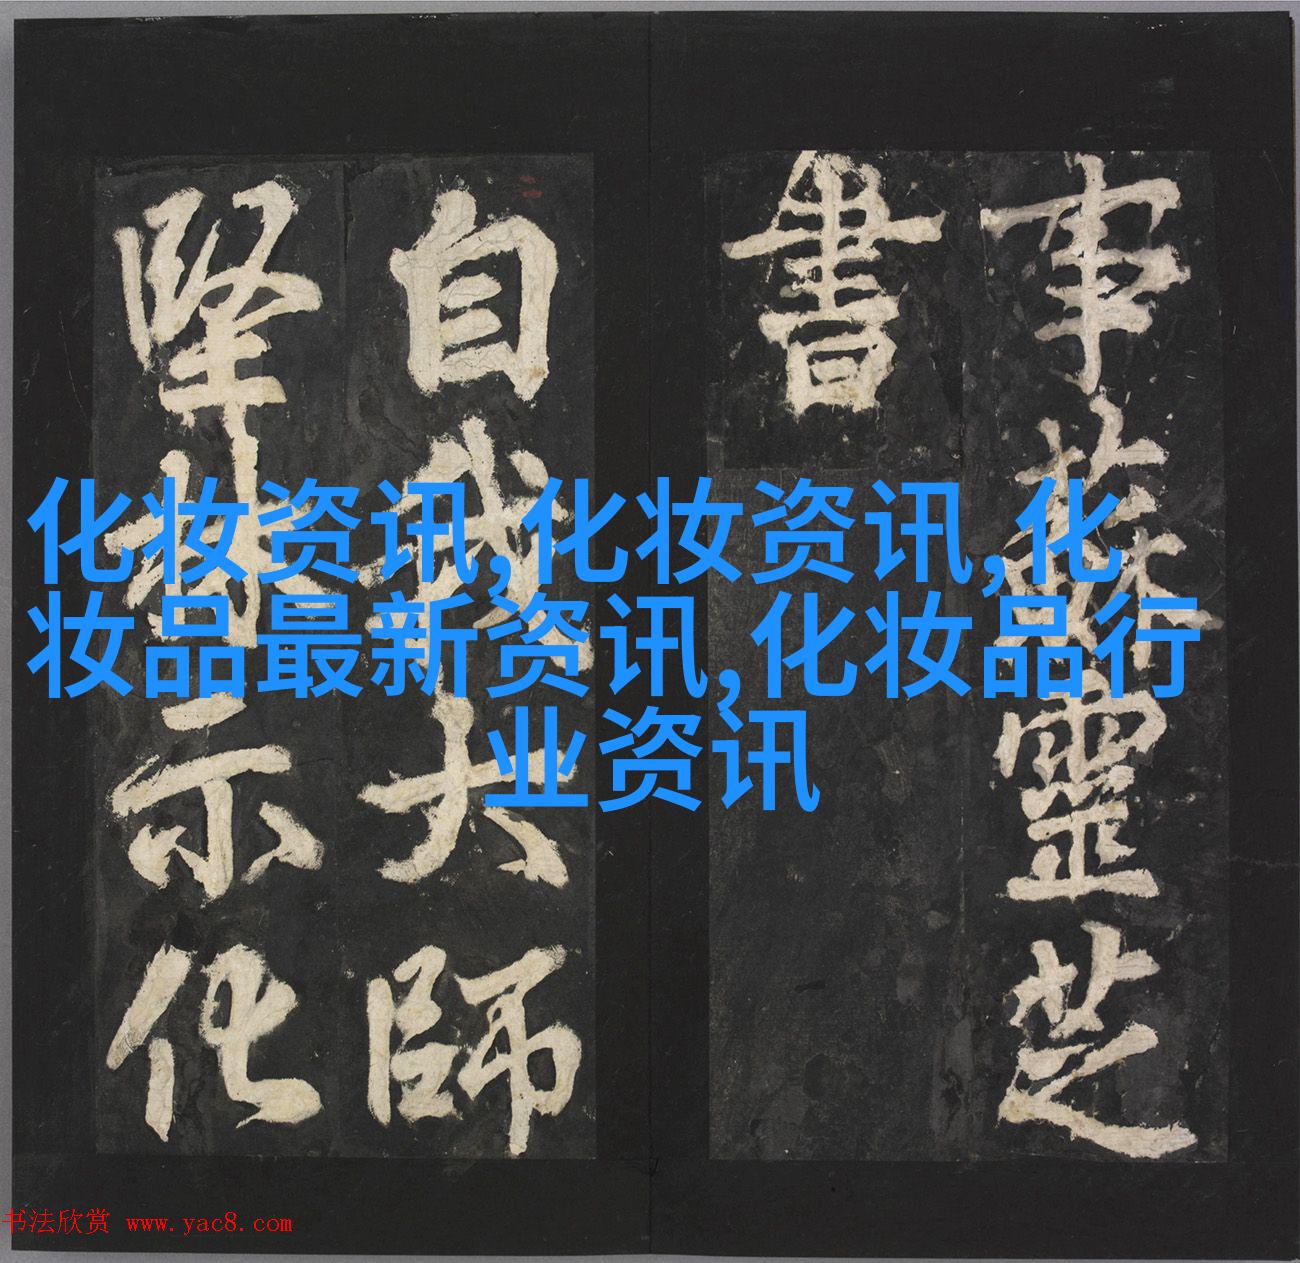 事蘇靈芝
書
自我大師
堅林示化
化妆资讯,化妆资讯,化
妆品最新资讯,化妆品行
业资讯
书法欣赏 www.yac8.com